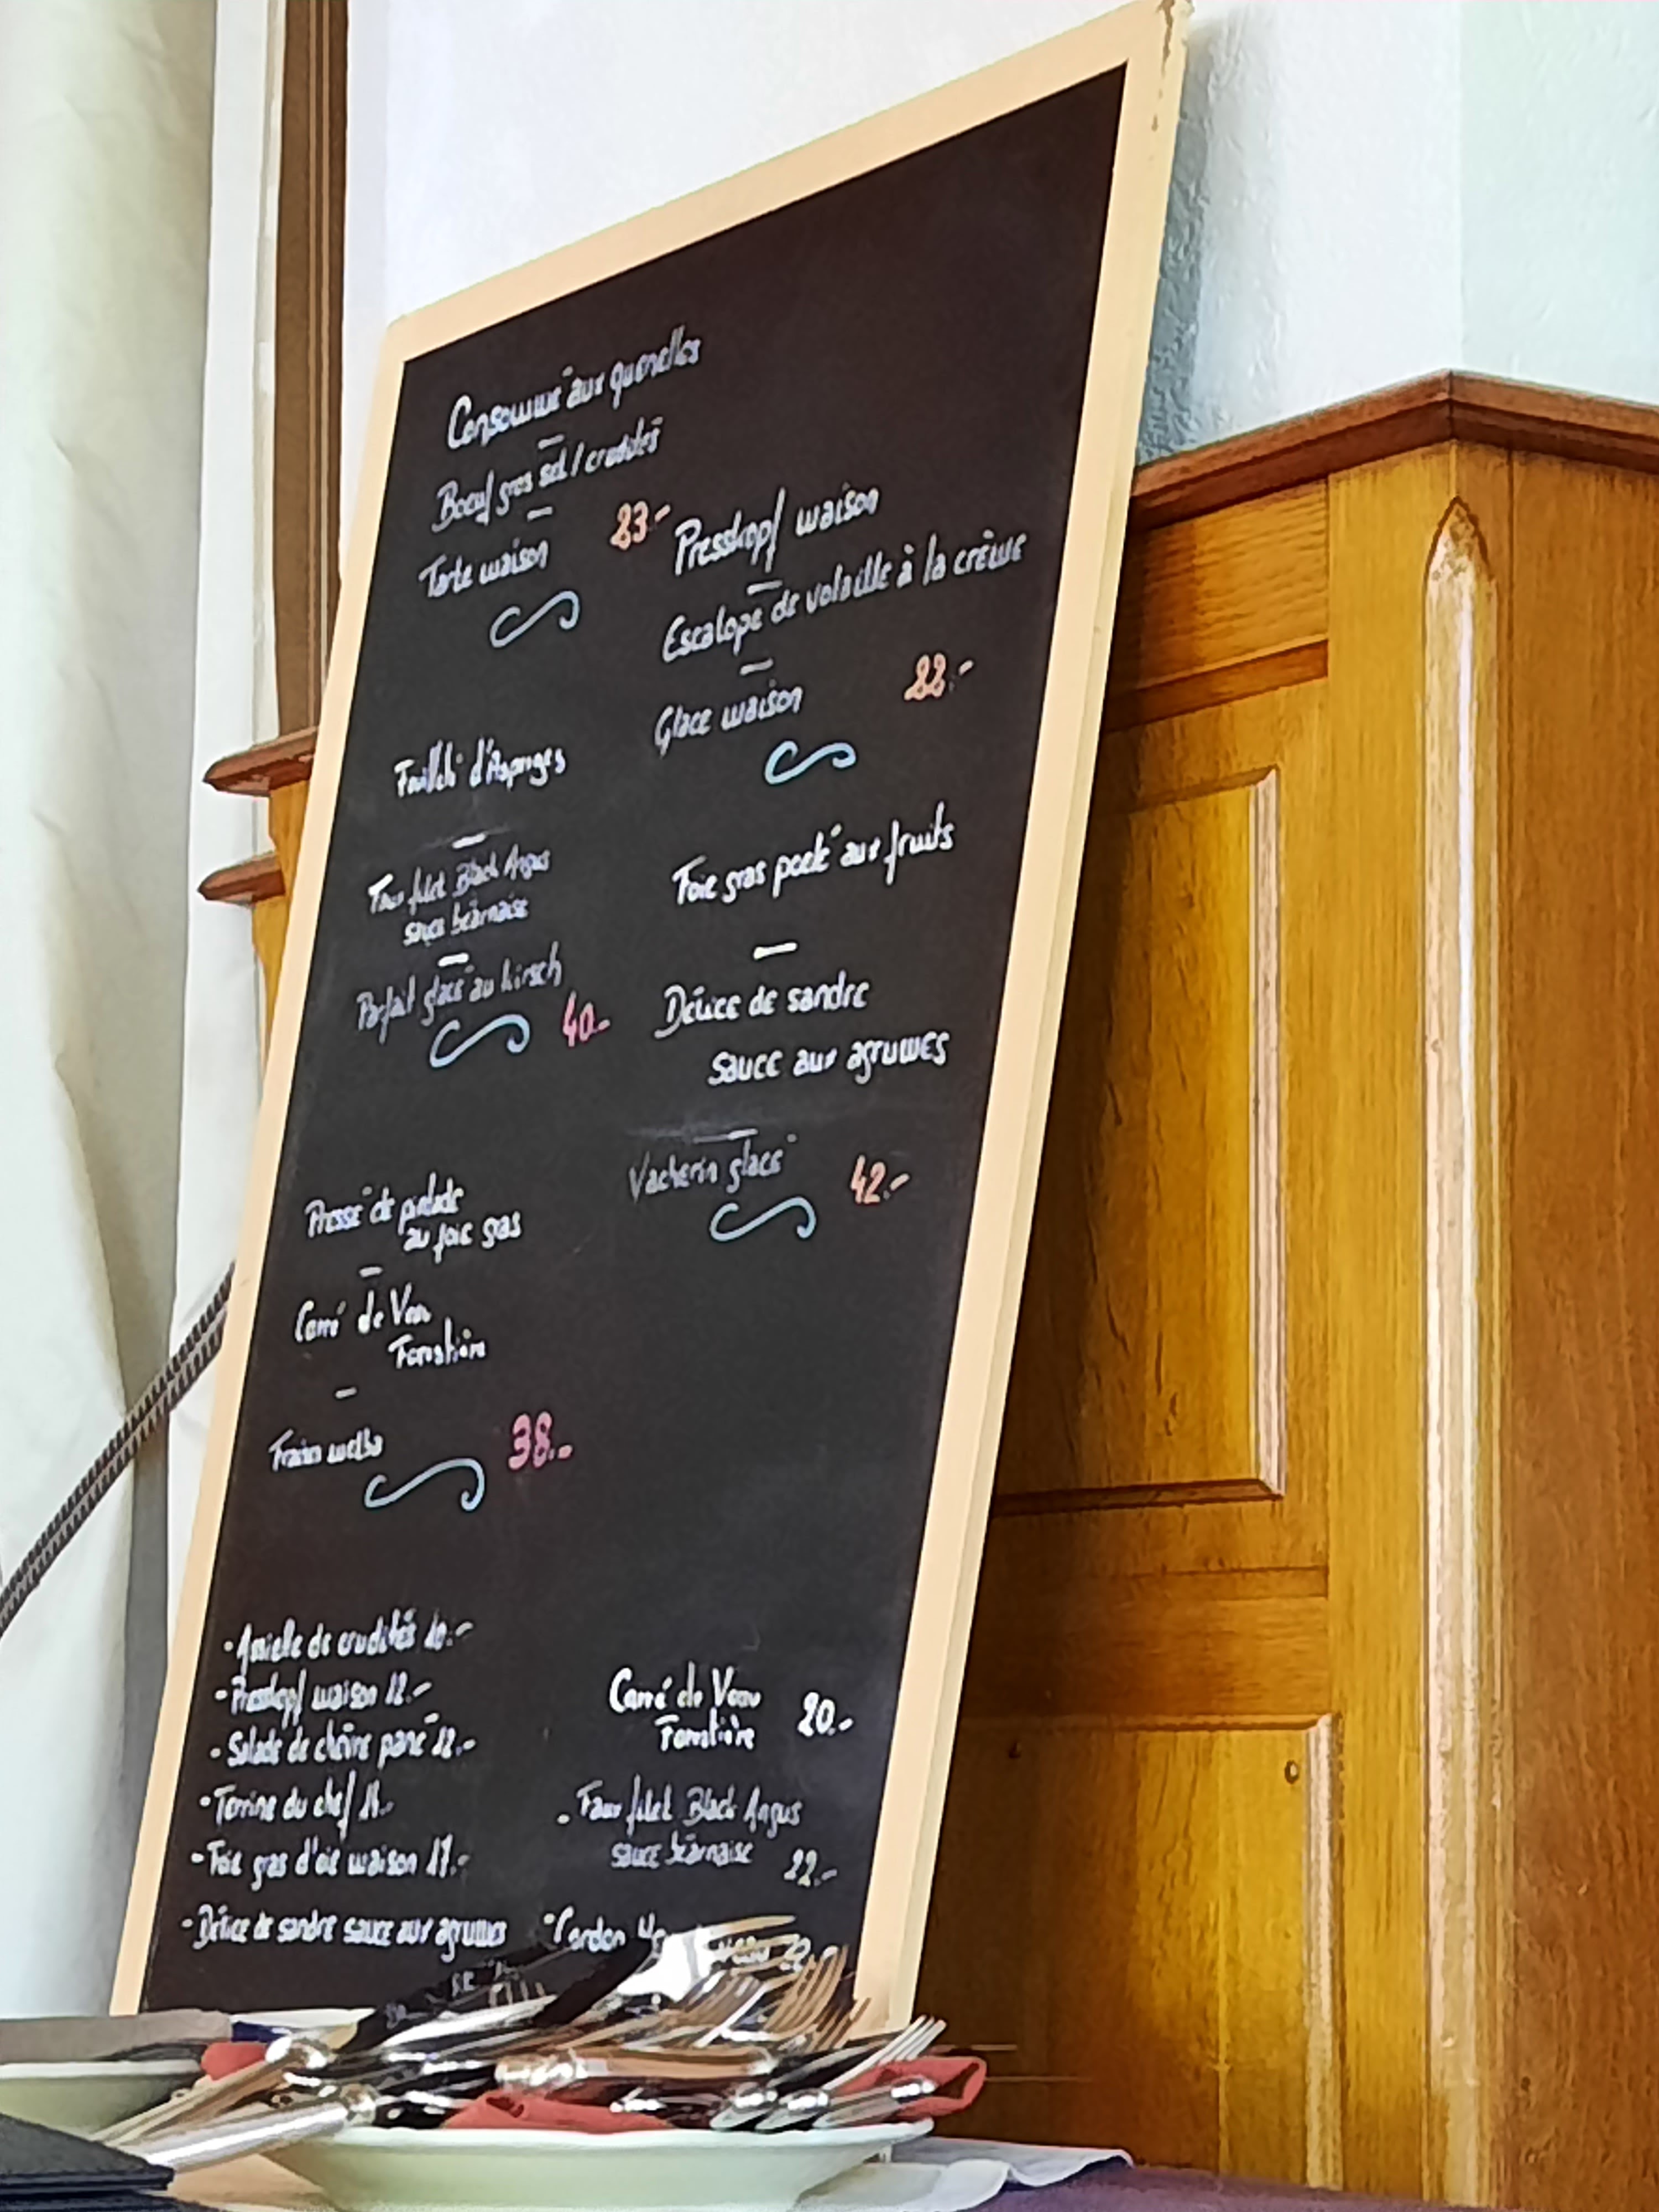 Consommé aux quenelles
Boeuf gros sel / crudités
Tarte maison 23.-
Presskopf maison
Escalope de volaille à la crème
Glace maison 22.-
Feuilleté d'Asperges
Faux filet Black Angus
sauce béarnaise
Parfait glacé au kirsch 40.-
Foie gras poélé aux fruits
Délice de sandre
sauce aux agrumes
Vacherin glacé 42.-
Pressé de pintade
au foie gras
Carré de Veau
Forestière
Fraises melba 38.-
- Assiette de crudités 10.-
- Presskopf maison 12.-
- Salade de chèvre pané 12.-
- Terrine du chef 14.-
- Foie gras d'oie maison 17.-
- Délice de sandre sauce aux agrumes
Carré de Veau
Forestière 20.-
- Faux filet Black Angus
sauce béarnaise 22.-
- Cordon